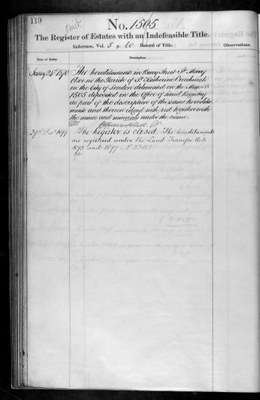 119
No. 1505
The Register of Estates with an Indefeasible Title.
Reference, Vol. 5 p. 60 Record of Title.
Observations.
Date of Entry.
Description
The hereditaments in Bury Street St Mary
Axe in the Parish of St Katherine Creechurch
in the City of London delineated on the Map No
1505 deposited in the Office of Land Registry
as part of the description of the same heredita-
ments and thereon edged with red together with
the mines and minerals under the same
The Register is closed. The hereditaments
are registered under the Land Transfer Acts
1875 and 1897